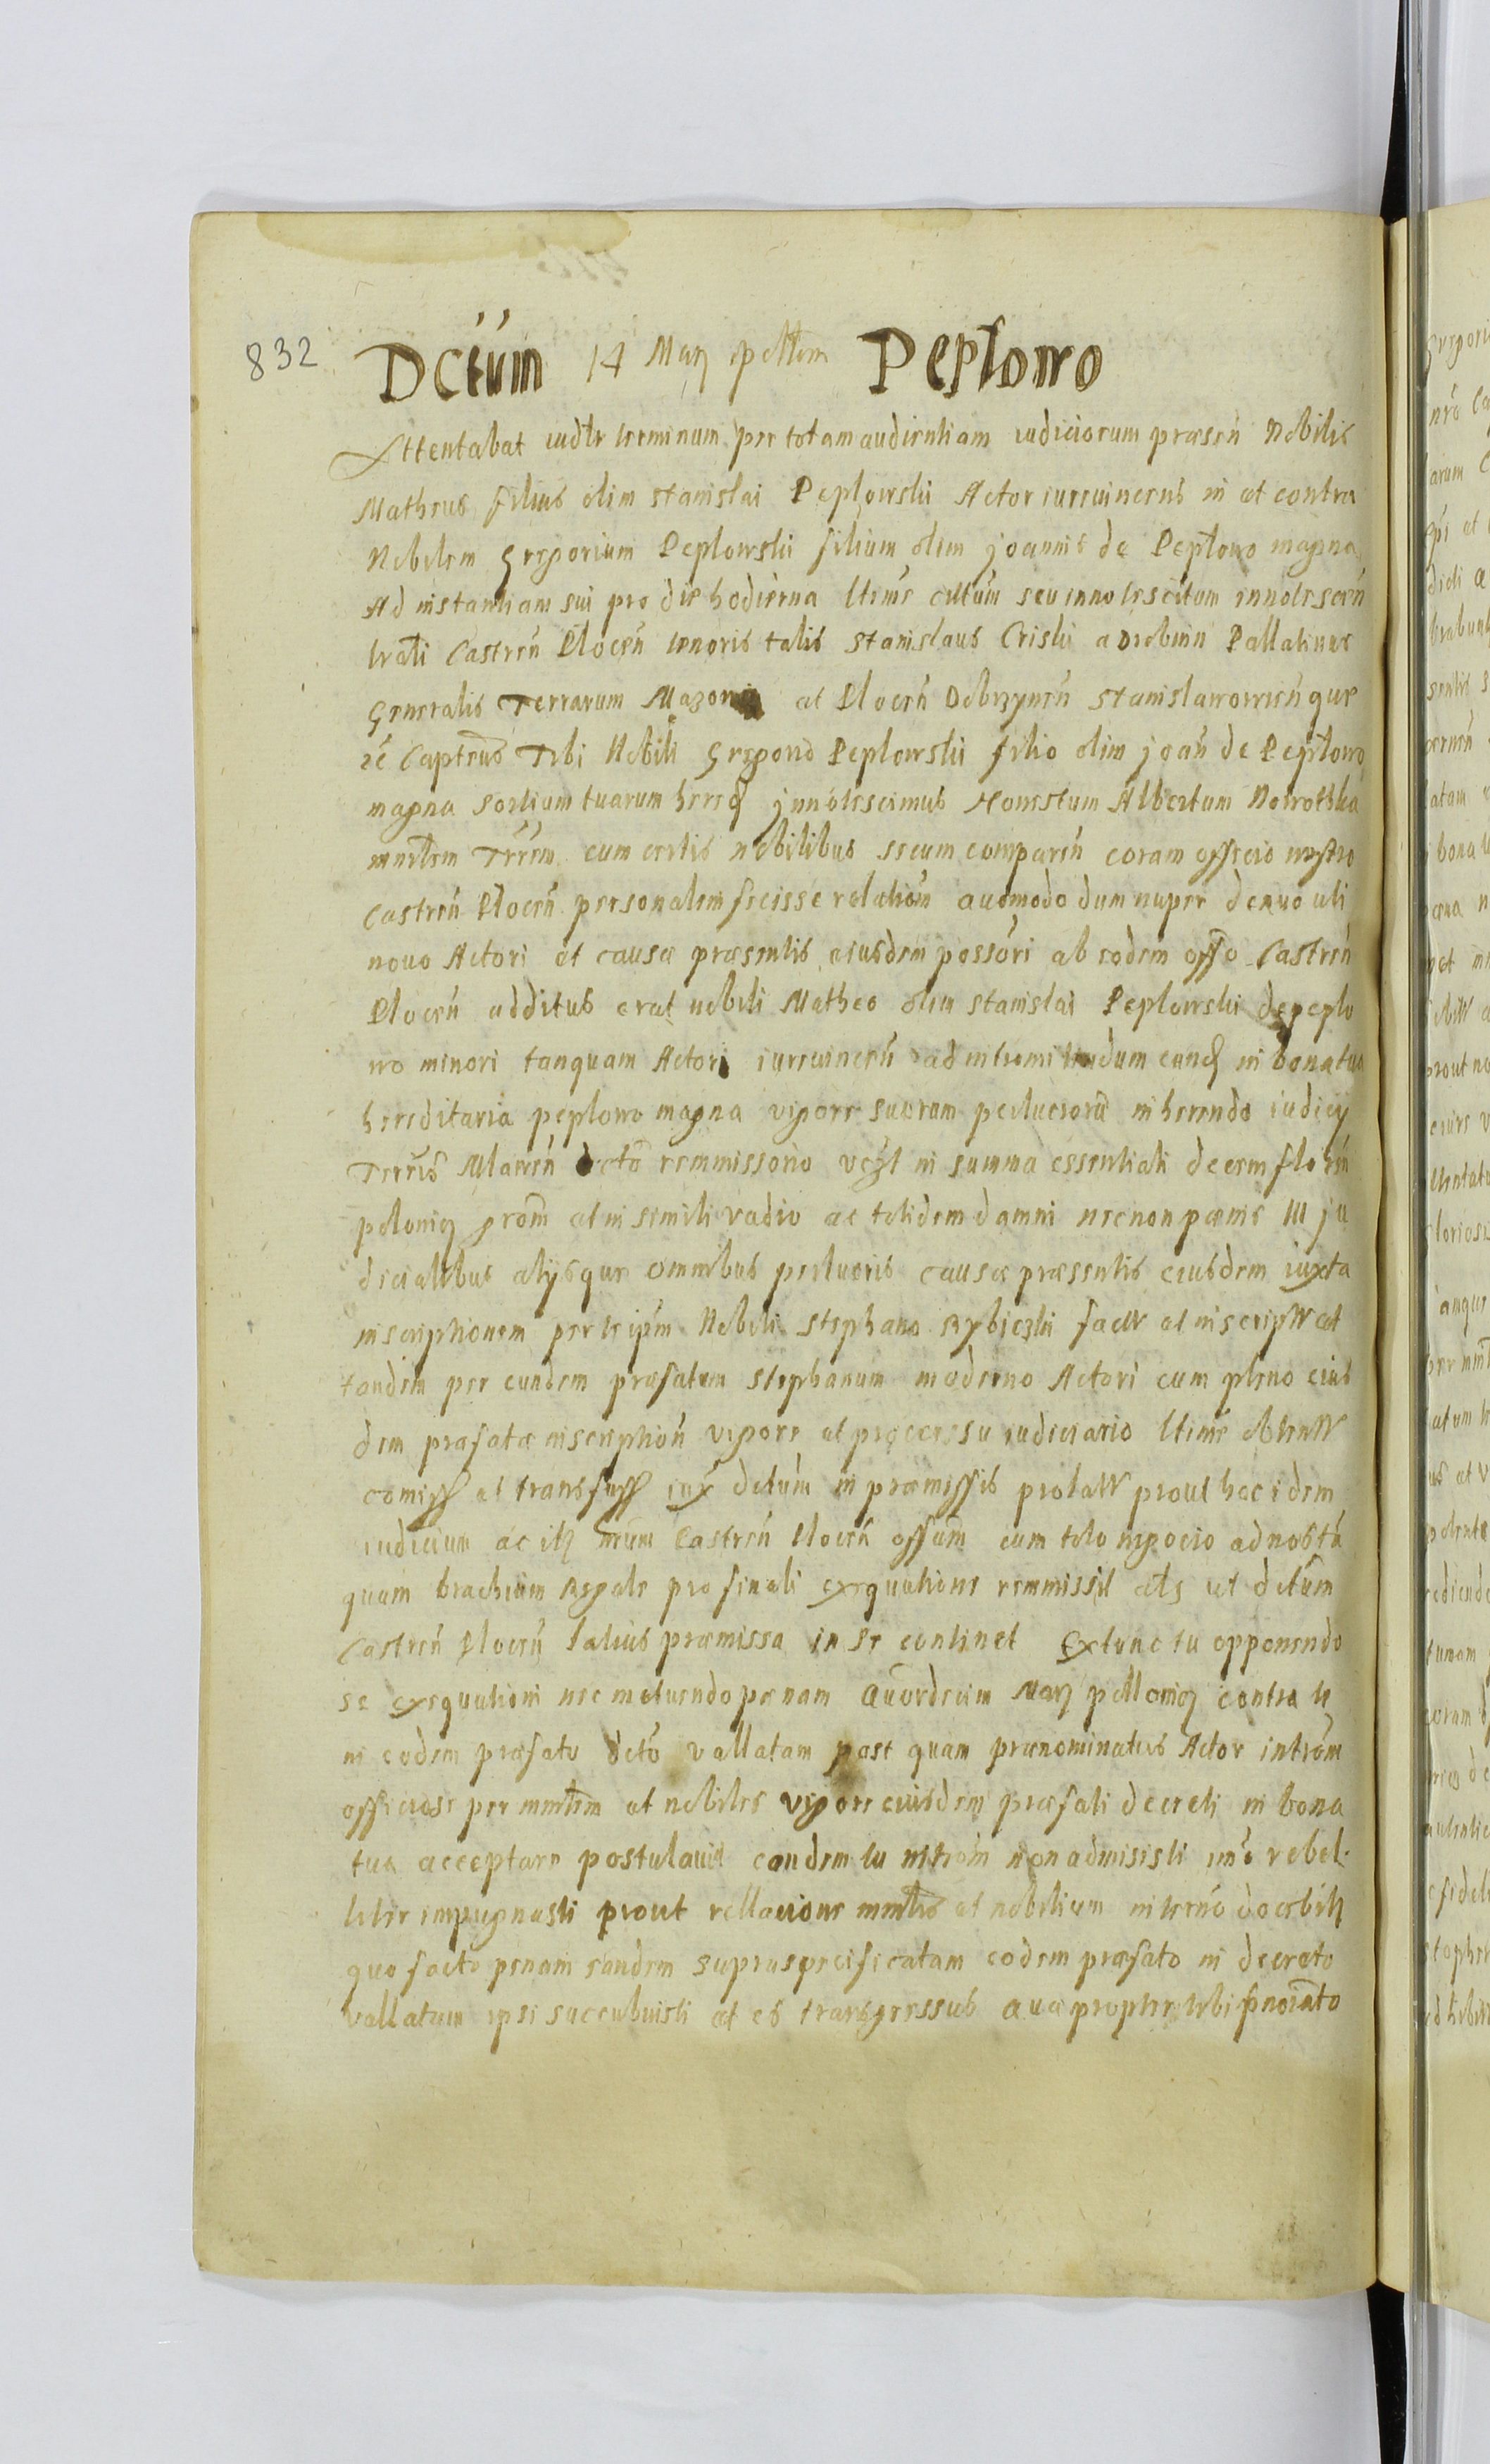 832 Dctum 14 Marz pollem Peplowo
Attentabat iudtr terminum per totam audientiam iudiciorum praesen Nobilis
Matheus filius olim Stanislai Peplowskii Actor iurevincens in et contra
Nobilem Gregorium Peplowskii filium olim Joannis de Peplowo magna
Ad instantiam sui pro die hodierna ltime cittum seu innotescitum innotescen
trali Castren Plocen tenoris talis Stanislaus Criskii a Drobinin Pallatinus
Generalis Terrarum Mazoniae et Plocen Dobrzynen Stanislawowien que
zc Capteus Tibi Nobili Gregorio Peplowskii filio olim Joan de Peplowo
magna sortium tuarum hered Innotescimus Honestum Albertum Nowothka
mnrlem Trrem cum certis nobilibus secum comparen coram officio nostro
Castren Plocen personalem fecisse relationem Quomodo dum nuper denuo uti
novo Actori et causae praesentis eiusdem possori ab eodem offo Castren
Plocen additus erat nobili Matheo olim Stanislai Peplowskii de peplo
wo minori tanquam Actori iurevincen ad intromittendum eund in bona tua
hereditaria peplowo magna vigore suorum perlucrorum inherendo iudicij
Terris Mlawen dcto remmissorio vczl in summa essentiali decem floren
polonicz prom et in simili vadio ac totidem damni necnon paenis III ju
dicialibus alijsque omnibus perlucris causae praesentis eiusdem iuxta
inscriptionem per te ipm Nobili Stephano Rybiczkii fact et inscript et
tandem per eundem praefatum Stephanum moderno Actori cum pleno eius
dem praefatae inscription vigore et processu iudiciario ltime obtent
comiss et transfuss iux detum in praemissis prolatt prout hoc idem
iudicium ac illz nrum Castren Plocen offum cum toto negocio ad nos ta
quam brachium Regale pro finali exequutione remmissit als ut detum
Castren Plocen latius praemissa in se continet Extunc tu opponendo
se exequutioni nec metuendo paenam Quordecim Marz pollonicz contra te
in eodem praefato dcto vallatam post quam praenominatus Actor introm
officiose per mnrlem et nobiles vigore eiusdem praefati decreti in bona
tua acceptare postulavit eandem tu introm non admisisti imo rebel-
liter impugnasti prout rellacione mnrlis et nobilium in termo docebitz
quo facto penam eandem supraspecificatam eodem praefato in decreto
vallatum ipsi succubuisti et es transgressus Quapropter tibi pnoiato